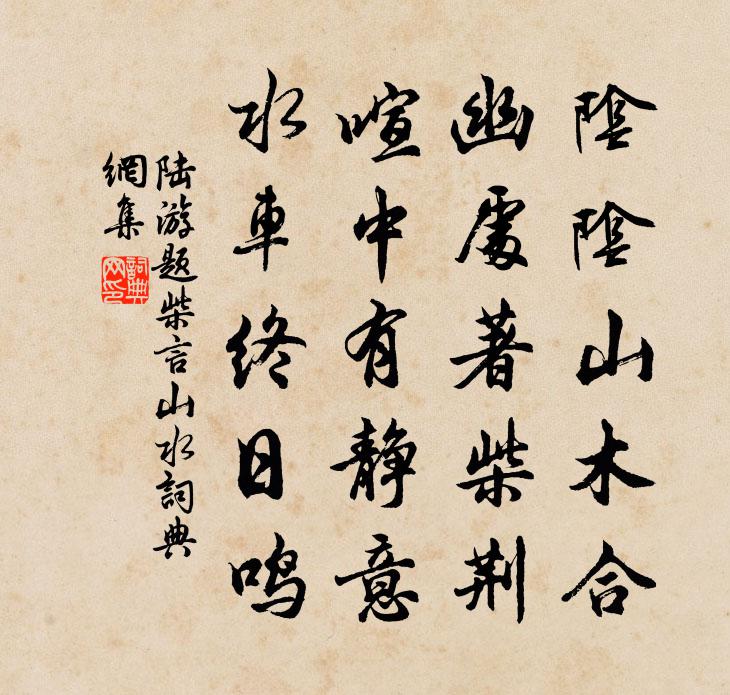 陰陰山木合
幽處著柴荆
喧中有静意
水車終日鸣
陆游题柴言山水詞典
網集
詞典
网印